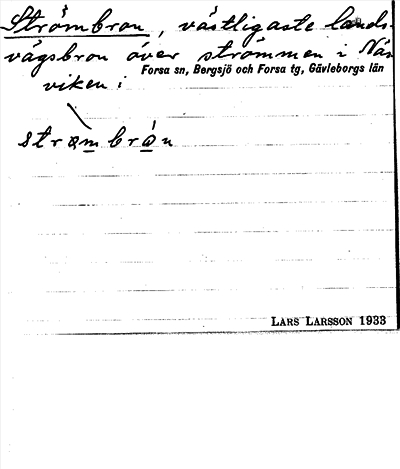 Strömbron, västligaste lands-
vägsbron över strömmen i Näs-
viken:
Forsa sn, Bergsjö och Forsa tg, Gävleborgs län
LARS LARSSON 1933